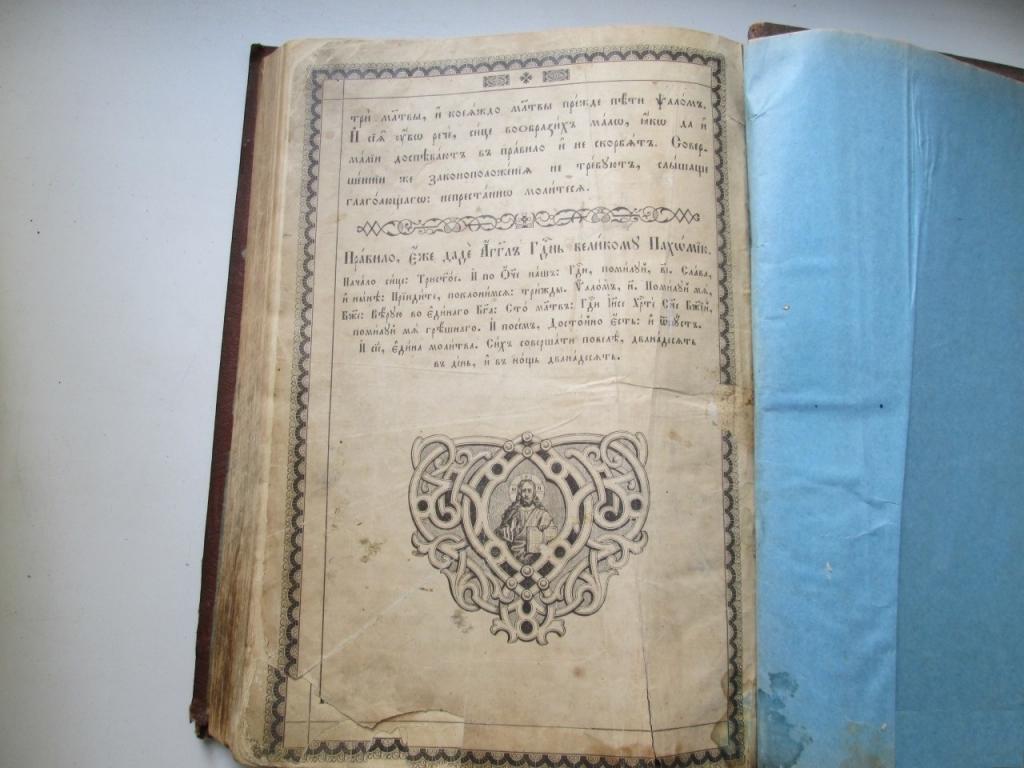 три̑ мл҃твы, и҆ коеѧ́ждо мл҃твы пре́жде пѣ́ти ѱало́мъ.
И҆ сїѧ̑ ᲂу҆́бѡ реко́хъ, си́це воѡбрази́хъ ма́лѡ, ꙗ҆́кѡ да и҆
ма́лїи доспѣва́ютъ въ пра́вило и҆ не скорбѧ́тъ. Совер-
ше́ннїи же законоположе́нїѧ не тре́буютъ, слы́шаще
глаго́лющаго: непреста́ннѡ моли́тесѧ.
Пра́вило, є҆́же дадѐ А҆́гг҃лъ Гдⷭ҇нь вели́кому Пахѡ́мїю.
Нача́ло си́це: Трист҃о́е. И҆ по Ѻ҆́ч҃е на́шъ: Гдⷭ҇и, поми́луй, в҃і. Сла́ва,
и҆ ны́нѣ: Прїиди́те, поклони́мсѧ: три́жды. Ѱало́мъ, н҃. Поми́луй мѧ̀,
Бж҃е: Вѣ́рую во є҆ди́наго Бг҃а: Сто̀ мл҃твъ: Гдⷭ҇и І҆и҃се Хрⷭ҇тѐ Сн҃е Бж҃їй,
поми́луй мѧ̀ грѣ́шнаго. И҆ посе́мъ, Досто́йно є҆́сть: и҆ ѿпꙋ́стъ.
И҆ сѐ, є҆ди́на моли́тва. Си́хъ соверша́ти повелѣ̀, двана́десѧть
въ де́нь, и҆ въ но́щь двана́десѧть.